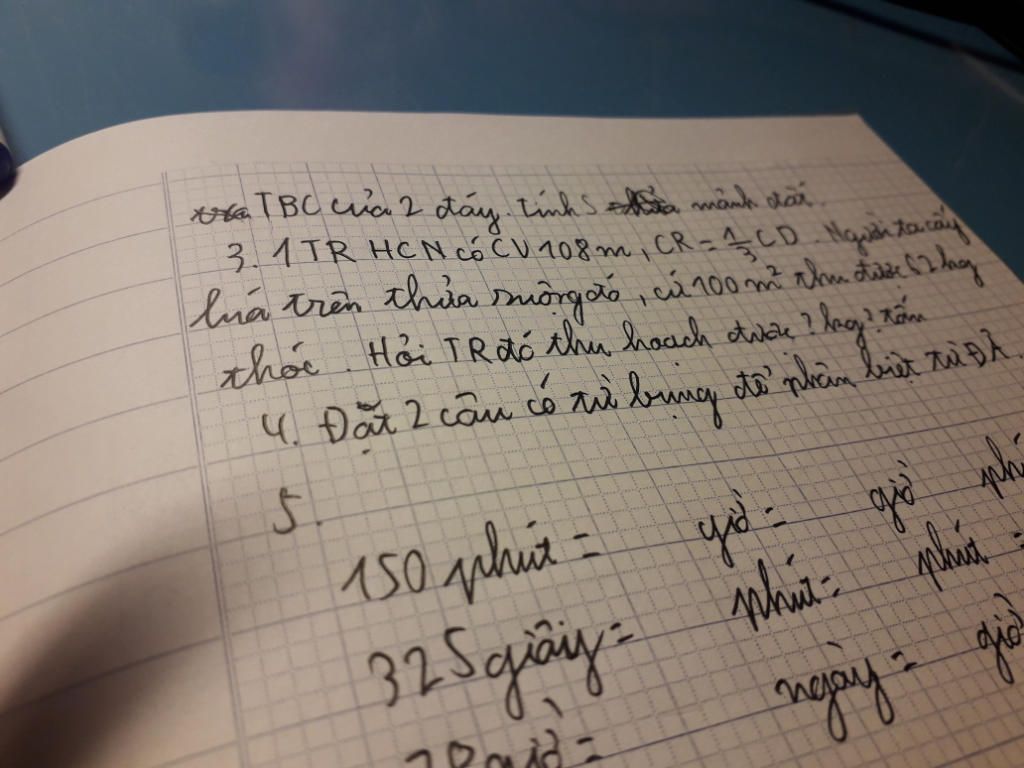 TBC của 2 đáy. tính S mảnh đất.
3. 1 TR HCN có CV 108m, CR = 1/3 CD. Người ta cấy
lúa trên thửa ruộng đó, cứ 100m² thu được 62kg
thóc. Hỏi TR đó thu hoạch được ? kg ? tấn
4. Đặt 2 câu có từ bụng để phân biệt từ ĐÂ.
5.
150 phút = giờ = giờ
325 giây = phút = phút =
giờ = ngày = giờ